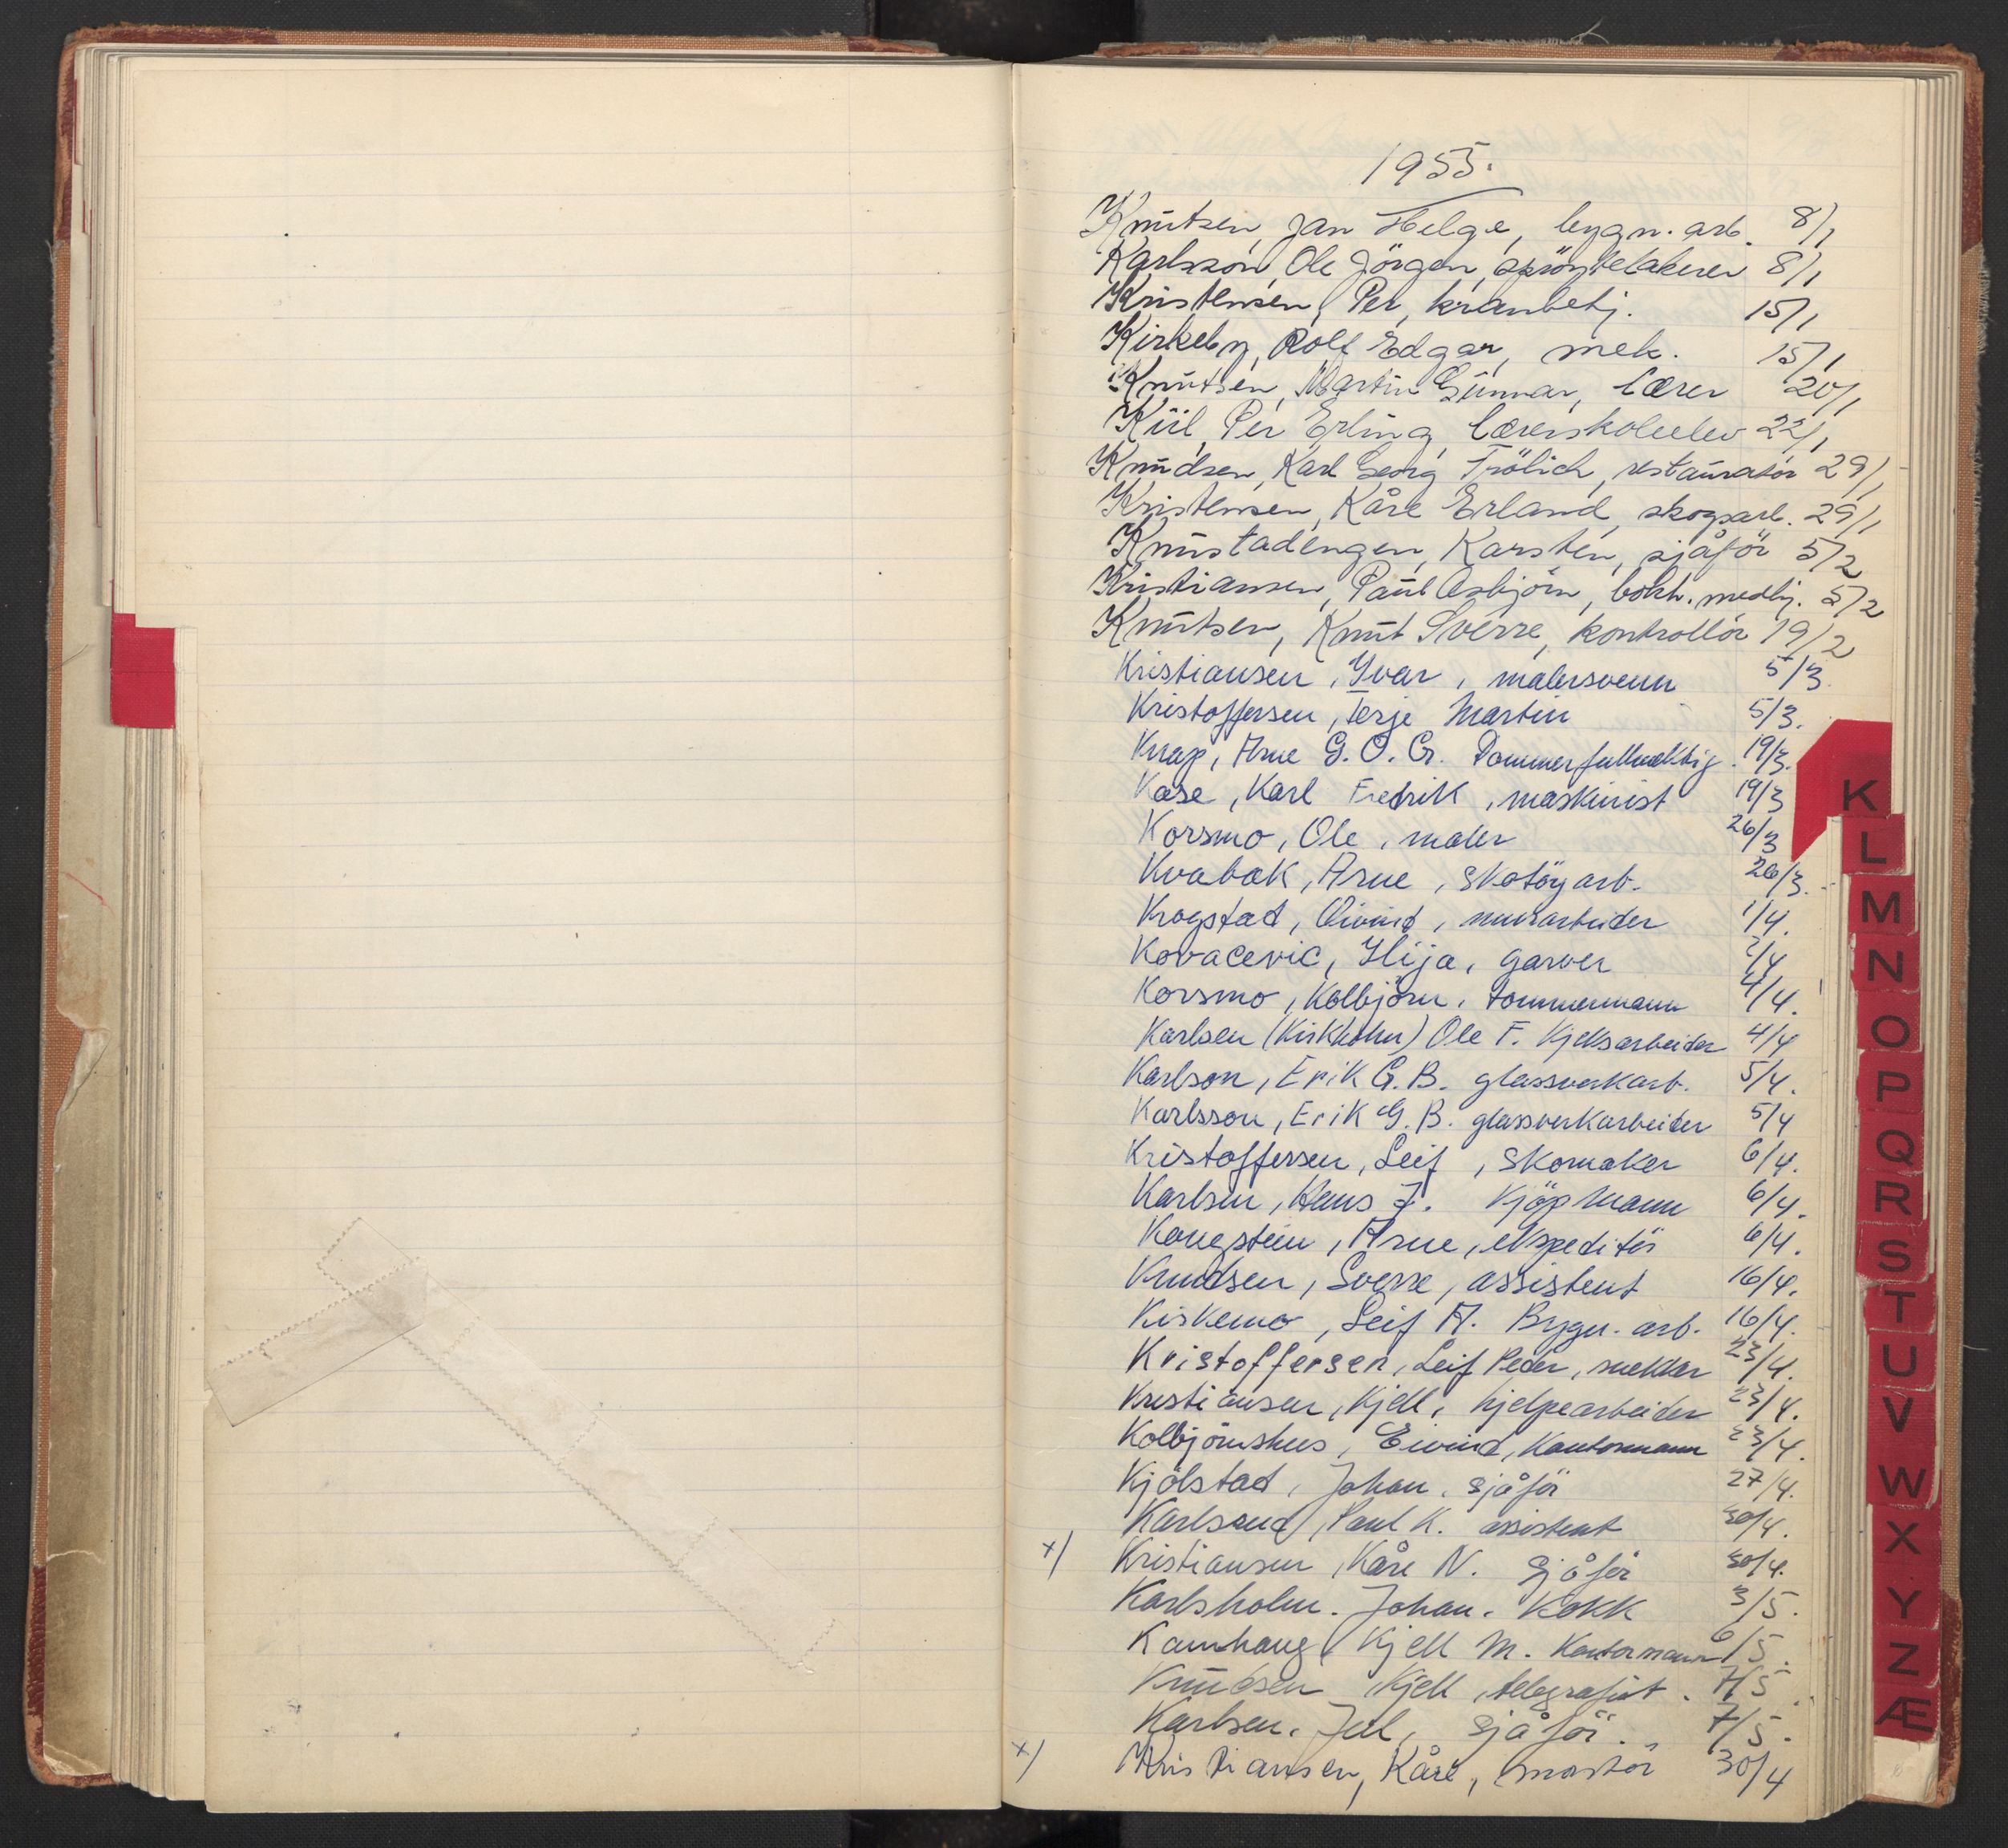 1955.
Knutsen, Jan Helge, bygn. arb. 8/1
Karlsson, Ole Jörgen, spröytelakerer 8/1
Kristensen, Per, kranbetj. 15/1
Kirkeby, Rolf Edgar, mek. 15/1
Knutsen, Martin Gunnar, lærer 20/1
Kiil, Per Erling, lærerskoleelev 22/1
Knudsen, Karl Georg Frölich, restauratör 29/1
Kristensen, Kåre Erland, skogsarb. 29/1
Knustadengen, Karsten, sjåför 5/2
Kristiansen, Paul Asbjörn, bokh. medhj. 5/2
Knutsen, Knut Sverre, kontrollör 19/2
Kristiansen, Yvar, malersvenn 5/3.
Kristoffersen, Terje Martin 5/3.
Knap, Arne G. O. Gr. Dommerfullmektig. 19/3.
Kase, Karl Fredrik, maskinist 19/3
Korsmo, Ole, maler 26/3
Kvabæk, Arne, skotöyarb. 26/3.
Krogstad, Oivind, murarbeider 1/4.
Kovacevic, Ilija, garver 2/4
Korsmo, Kolbjörn, tömmermann 4/4.
Karlsen (Kirkholm) Ole F. Kjeksarbeider 4/4
Karlson, Erik G. B. glassverkarb. 5/4.
Karlsson, Erik G. B. glassverkarbeider 5/4
Kristoffersen, Leif, skomaker 6/4.
Karlsen, Hans J. Kjöpmann 6/4.
Kongstein, Arne, ekspeditör 6/4.
Knudsen, Sverre, assistent 16/4.
Kiskemo, Leif A. Bygn. arb. 16/4.
Kristoffersen, Leif Peder, mekler 23/4.
Kristiansen, Kjell, hjelpearbeider 23/4.
Kolbjörnshus, Eivind, Kontormann 23/4.
Kjölstad, Johan, sjåför 27/4.
Karlsrud, Paul K. assistent 30/4.
x) Kristiansen, Kåre N. Sjåför 30/4.
Karlsholm. Johan. Kokk 3/5.
Kamhaug, Kjell M. Kontormann 6/5.
Knudsen Kjell, telegrafist. 7/5.
Karlsen. Juel, sjåför. 7/5.
x) Kristiansen, Kåre, montör 30/4
K
L
M
N
O
P
Q
R
S
T
U
V
W
X
Y
Z
Æ